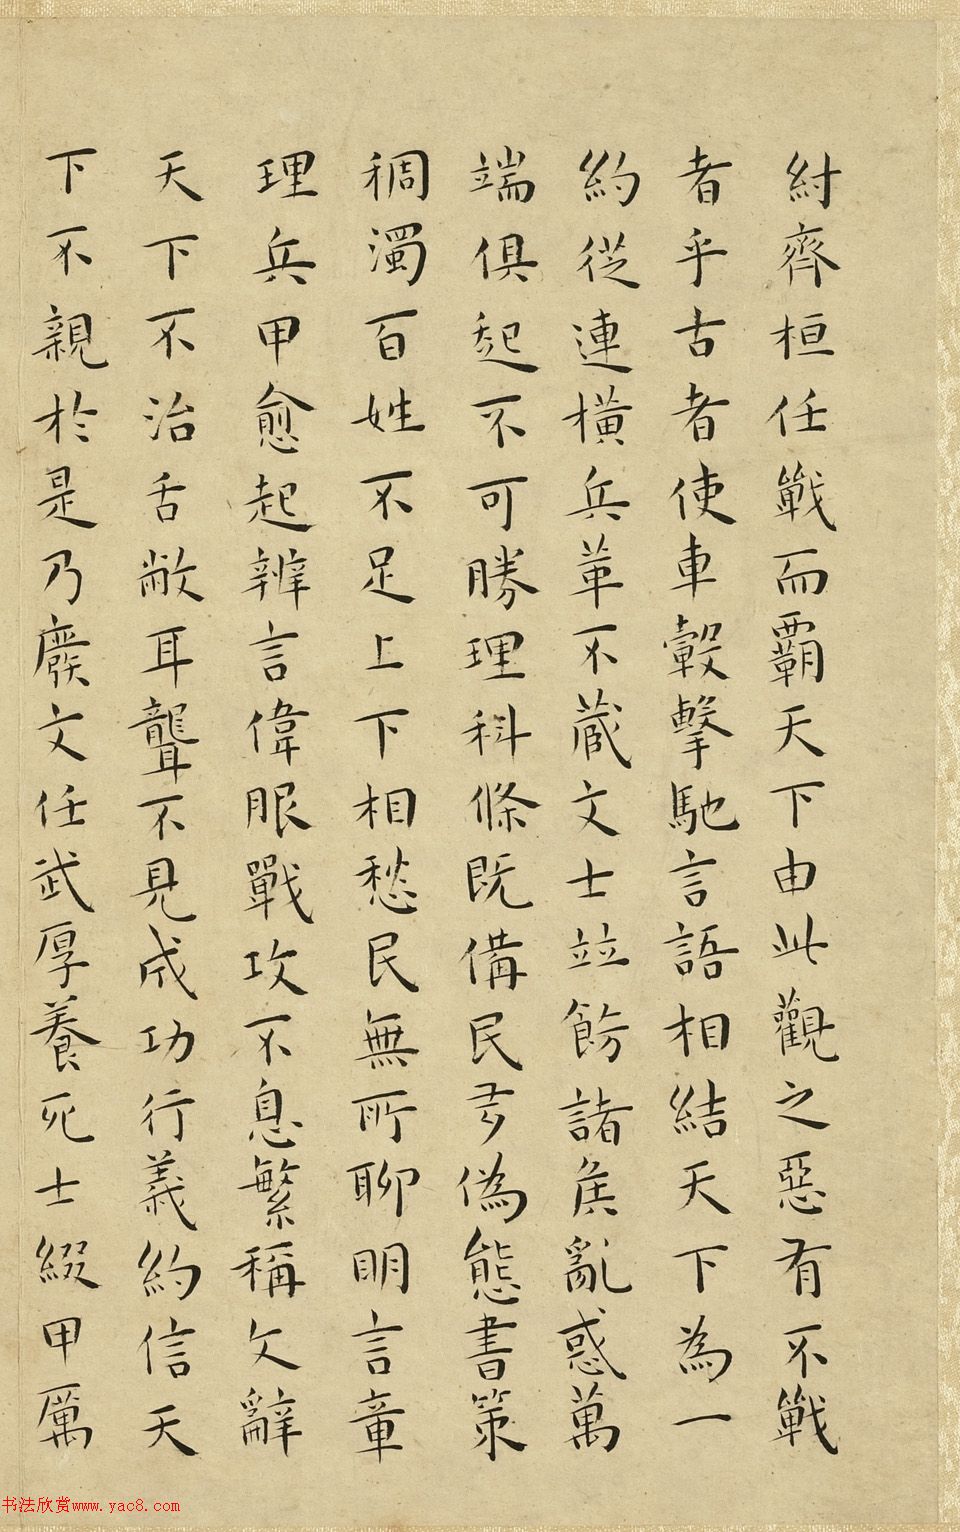 紂齊桓任戰而覇天下由此觀之惡有不戰
者乎古者使車轂擊馳言語相結天下為一
約從連橫兵革不蔵文士並餝諸矦亂惑萬
端俱起不可勝理科條既備民多偽態書策
稠濁百姓不足上下相愁民無所聊明言章
理兵甲愈起辨言偉服戰攻不息繁稱文辭
天下不治舌敝耳聾不見成功行義約信天
下不親於是乃廢文任武厚養死士綴甲厲
书法欣赏www.yac8.com